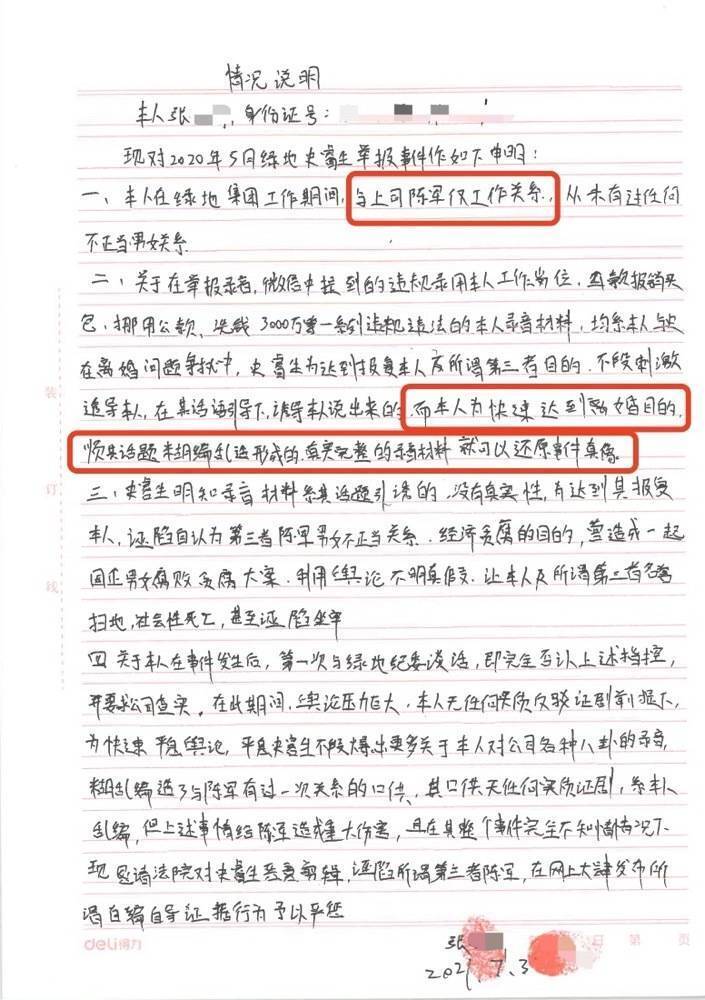 情况说明
本人张 ,身份证号:
现对2020年5月绿地史睿生举报事件作如下申明:
一、本人在绿地集团工作期间,与上司陈军仅工作关系,从未有过任何
不正当男女关系
二、关于在举报录音,微信中提到的违规录用本人工作岗位,公款报销买
包、挪用公款、 3000万票一系列违规违法的本人录音材料,均系本人与史
在离婚问题争执中,史睿生为达到报复本人及所谓第三者目的,不段刺激
追导本人,在其话语引导下,诱导本人说出来的,而本人为快速达到离婚目的,
顺其话题胡编乱造形成的,真实完整的录音材料就可以还原事件真像。
三、史睿生明知录音材料系其话题引诱的,没有真实性,为达到其报复
本人,诬陷自认为第三者陈军男女不正当关系、经济贪腐的目的,营造成一起
国企男女腐败贪腐大案,利用舆论不明真假,让本人及所谓第三者名誉
扫地,社会性死亡,甚至诬陷坐牢
四 关于本人在事件发生后,第一次与绿地纪委谈话,即完全否认上述指控,
并要求公司查实。在此期间,舆论压力巨大,本人无任何实质反驳证剧前提下,
为快速平息舆论,平息史睿生不段爆出更多关于本人对公司各种八卦的录音,
糊乱编造了与陈军有过一次关系的口供,其口供无任何实质证剧,系本人
乱编,但上述事情给陈军造成重大伤害,且在其整个事件完全不知情情况下
现恳请法院对史睿生恶意剪辑,诬陷所谓第三者陈军,在网上大肆发布所
谓自编自导证据行为予以严惩
装
订
线
deli得力
日 第 页
张
2021.7.3